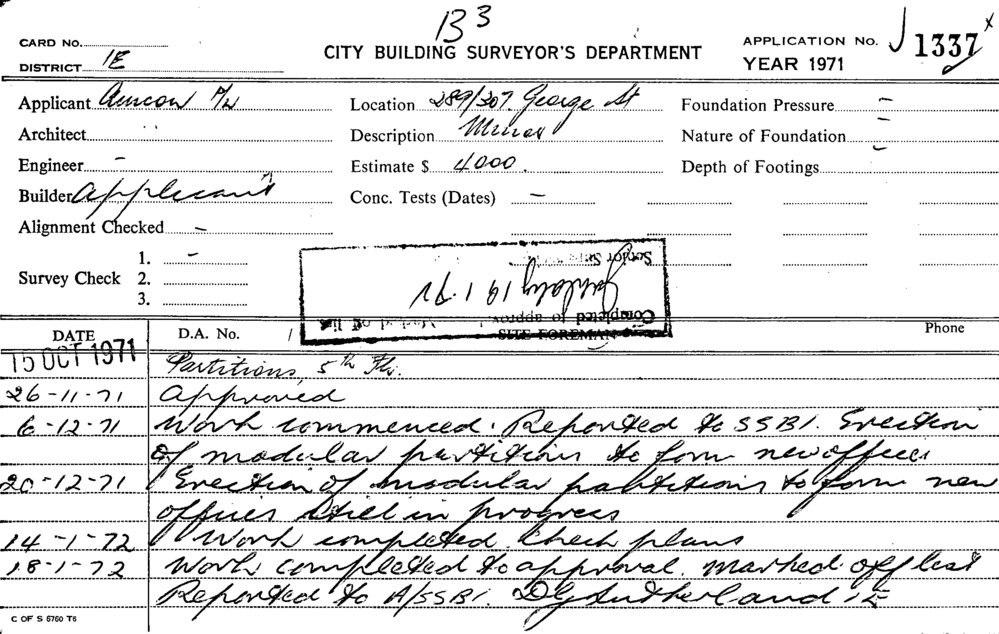 B3
CARD No.
CITY BUILDING SURVEYOR'S DEPARTMENT
APPLICATION No. 1337
DISTRICT 1E
YEAR 1971
Applicant P/L
Location 289/307 George St
Foundation Pressure -
Architect
Description Minor
Nature of Foundation -
Engineer -
Estimate $ 4000.
Depth of Footings -
Builder Applicant
Conc. Tests (Dates) -
Alignment Checked -
Survey Check 1. -
2.
3.
Senior
19.1.72
Completed to approval Marked off list
DATE
D.A. No. /
SITE FOREMAN
Phone
15 OCT 1971 Partitions, 5th Flr.
26-11-71 Approved
6-12-71 Work commenced. Reported to SSBI. Erection
of modular partitions to form new offices
20-12-71 Erection of modular partitions to form new
offices still in progress
14-1-72 Work completed. Check plans
18-1-72 Work completed to approval. marked off list
Reported to A/SSBI. DGSutherland 1E
C OF S 5760 T6